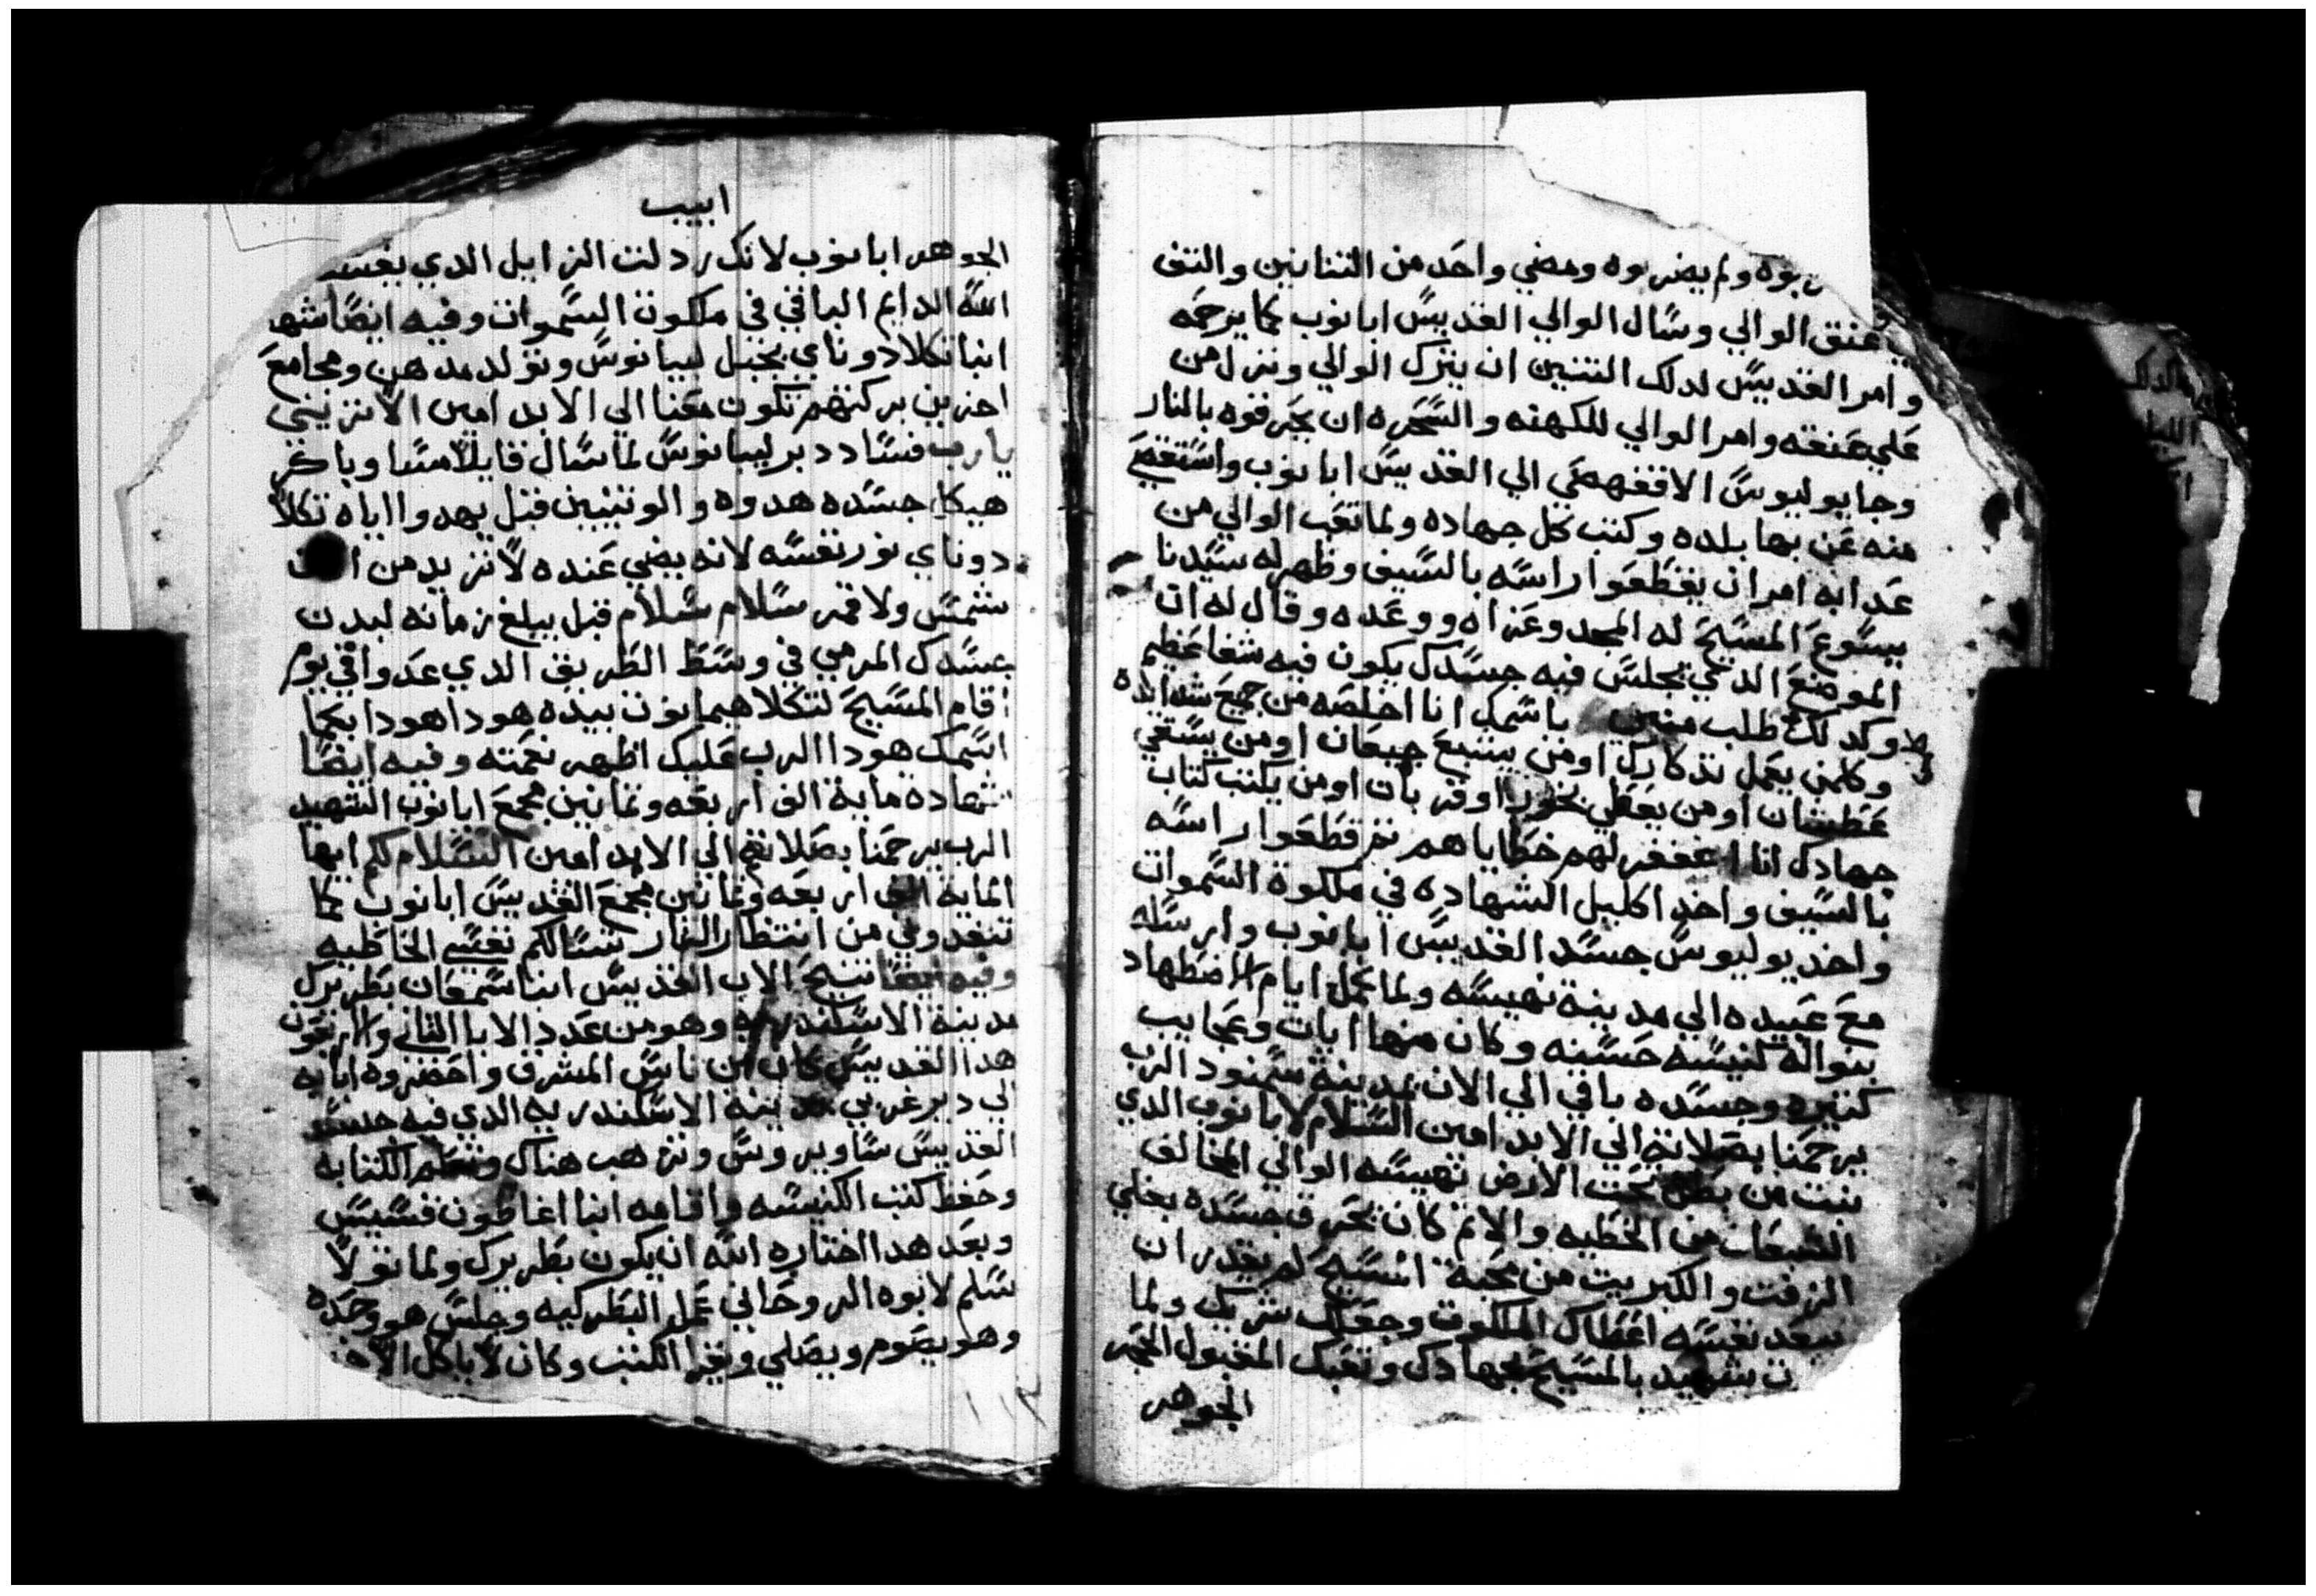 ربوه ولم يضربوه ومضي واحد من التنانين والتف
عنق الوالي وسال الوالي القديس ابانوب كما يرحمه
وامر القديس لدلك التنين ان يترك الوالي ونزل من
علي عنقه وامر الوالي للكهنه والسحره ان يحرقوه بالنار
وجا يوليوس الاقفهصي الي القديس ابانوب واستقصي
منه عن بها بلده وكتب كل جهاده ولما تعب الوالي من
عدابه امر ان يقطعوا راسه بالسيف وظهر له سيدنا
يسوع المسيح له المجد وعزاه ووعده وقال له ان
الموضع الدي يجلس فيه جسدك يكون فيه شفا عظيم
وكدلك طلب منين باسمك انا اخلصه من جميع شدايده
وكلمن يعمل تدكارك او من يشبع جيعان او من يسقي
عطشان او من يعطي بخور او قربان او من يكتب كتاب
جهادك انا اغفر لهم خطاياهم ثم قطعوا راسه
بالسيف واخد اكليل الشهاده في ملكوة السموات
واخد يوليوس جسد القديس ابانوب وارسله
مع عبيده الي مدينة نهيسه ولما كمل ايام الاضطهاد
بنوا له كنيسه حسنه وكان منها ايات وعجايب
كثيره وجسده باقي الي الان بمدينة سمنود الرب
يرحمنا بصلاته الي الابد امين السلام لابانوب الدي
بنت من بطن تحت الارض نهيسه الوالي المخالف
الشبعان من الخطيه والاثم كان يحرق جسده بغلي
الزفت والكبريت من محبة المسيح لم يقدر ان
يبعد نفسه اعطاك الملكوت وجعلك شريك ولما
ن شهيد بالمسيح بجهادك وتعبك المقبول الحجر
الجوهر
ابيب
الجوهر ابانوب لانك ردلت الزايل الدي يفسد
الله الدايم الباقي في ملكوت السموات وفيه ايضا شها
انبا تكلا دوناي بجبل ليبانوس وتولد مدهن ومجامع
اخرين بركتهم تكون معنا الي الابد امين الا تريني
يارب فساد دبر ليبانوس لما سال قايلا مسا وباكر
هيكل جسده هدوه والوثنيين قبل يهدوا اياه تكلا
دوناي نور نفسه لانه يضي عنده لا تزيد من
شمس ولا قمر سلام سلام قبل يبلغ زمانه لبدن
عسدك المرمي في وسط الطريق الدي عدوا في يوم
اقام المسيح لتكلا هيمانوت بيده هودا هودا بكما
اسمك هودا الرب عليك اظهر نعمته وفيه ايضا
شهادة ماية الف اربعه وثمانين مجمع ابانوب الشهيد
الرب يرحمنا بصلاتهم الي الابد امين السلام لكم ايها
الماية الف اربعه وثمانين مجمع القديس ابانوب كما
تنقدوني من انتظار النار تسالكم نفسي الخاطيه
وفيه ايضا تنيح الاب القديس انبا سمعان بطريرك
مدينة الاسكندريه وهو من عدد الابا الثاني والاربعون
هدا القديس كان من ناس المشرق واحضروه ابايه
الي دير غربي مدينة الاسكندريه الدي فيه جسد
القديس ساويروس وترهب هناك وتعلم الكتابه
وحفظ كتب الكنيسه واقامه انبا اغاطون قسيس
وبعد هدا اختاره الله ان يكون بطريرك ولما تولا
سلم لابوه الروحاني عمل البطركيه وجلس هو وحده
وهو يصوم ويصلي ويقرا الكتب وكان لا ياكل
١١٢